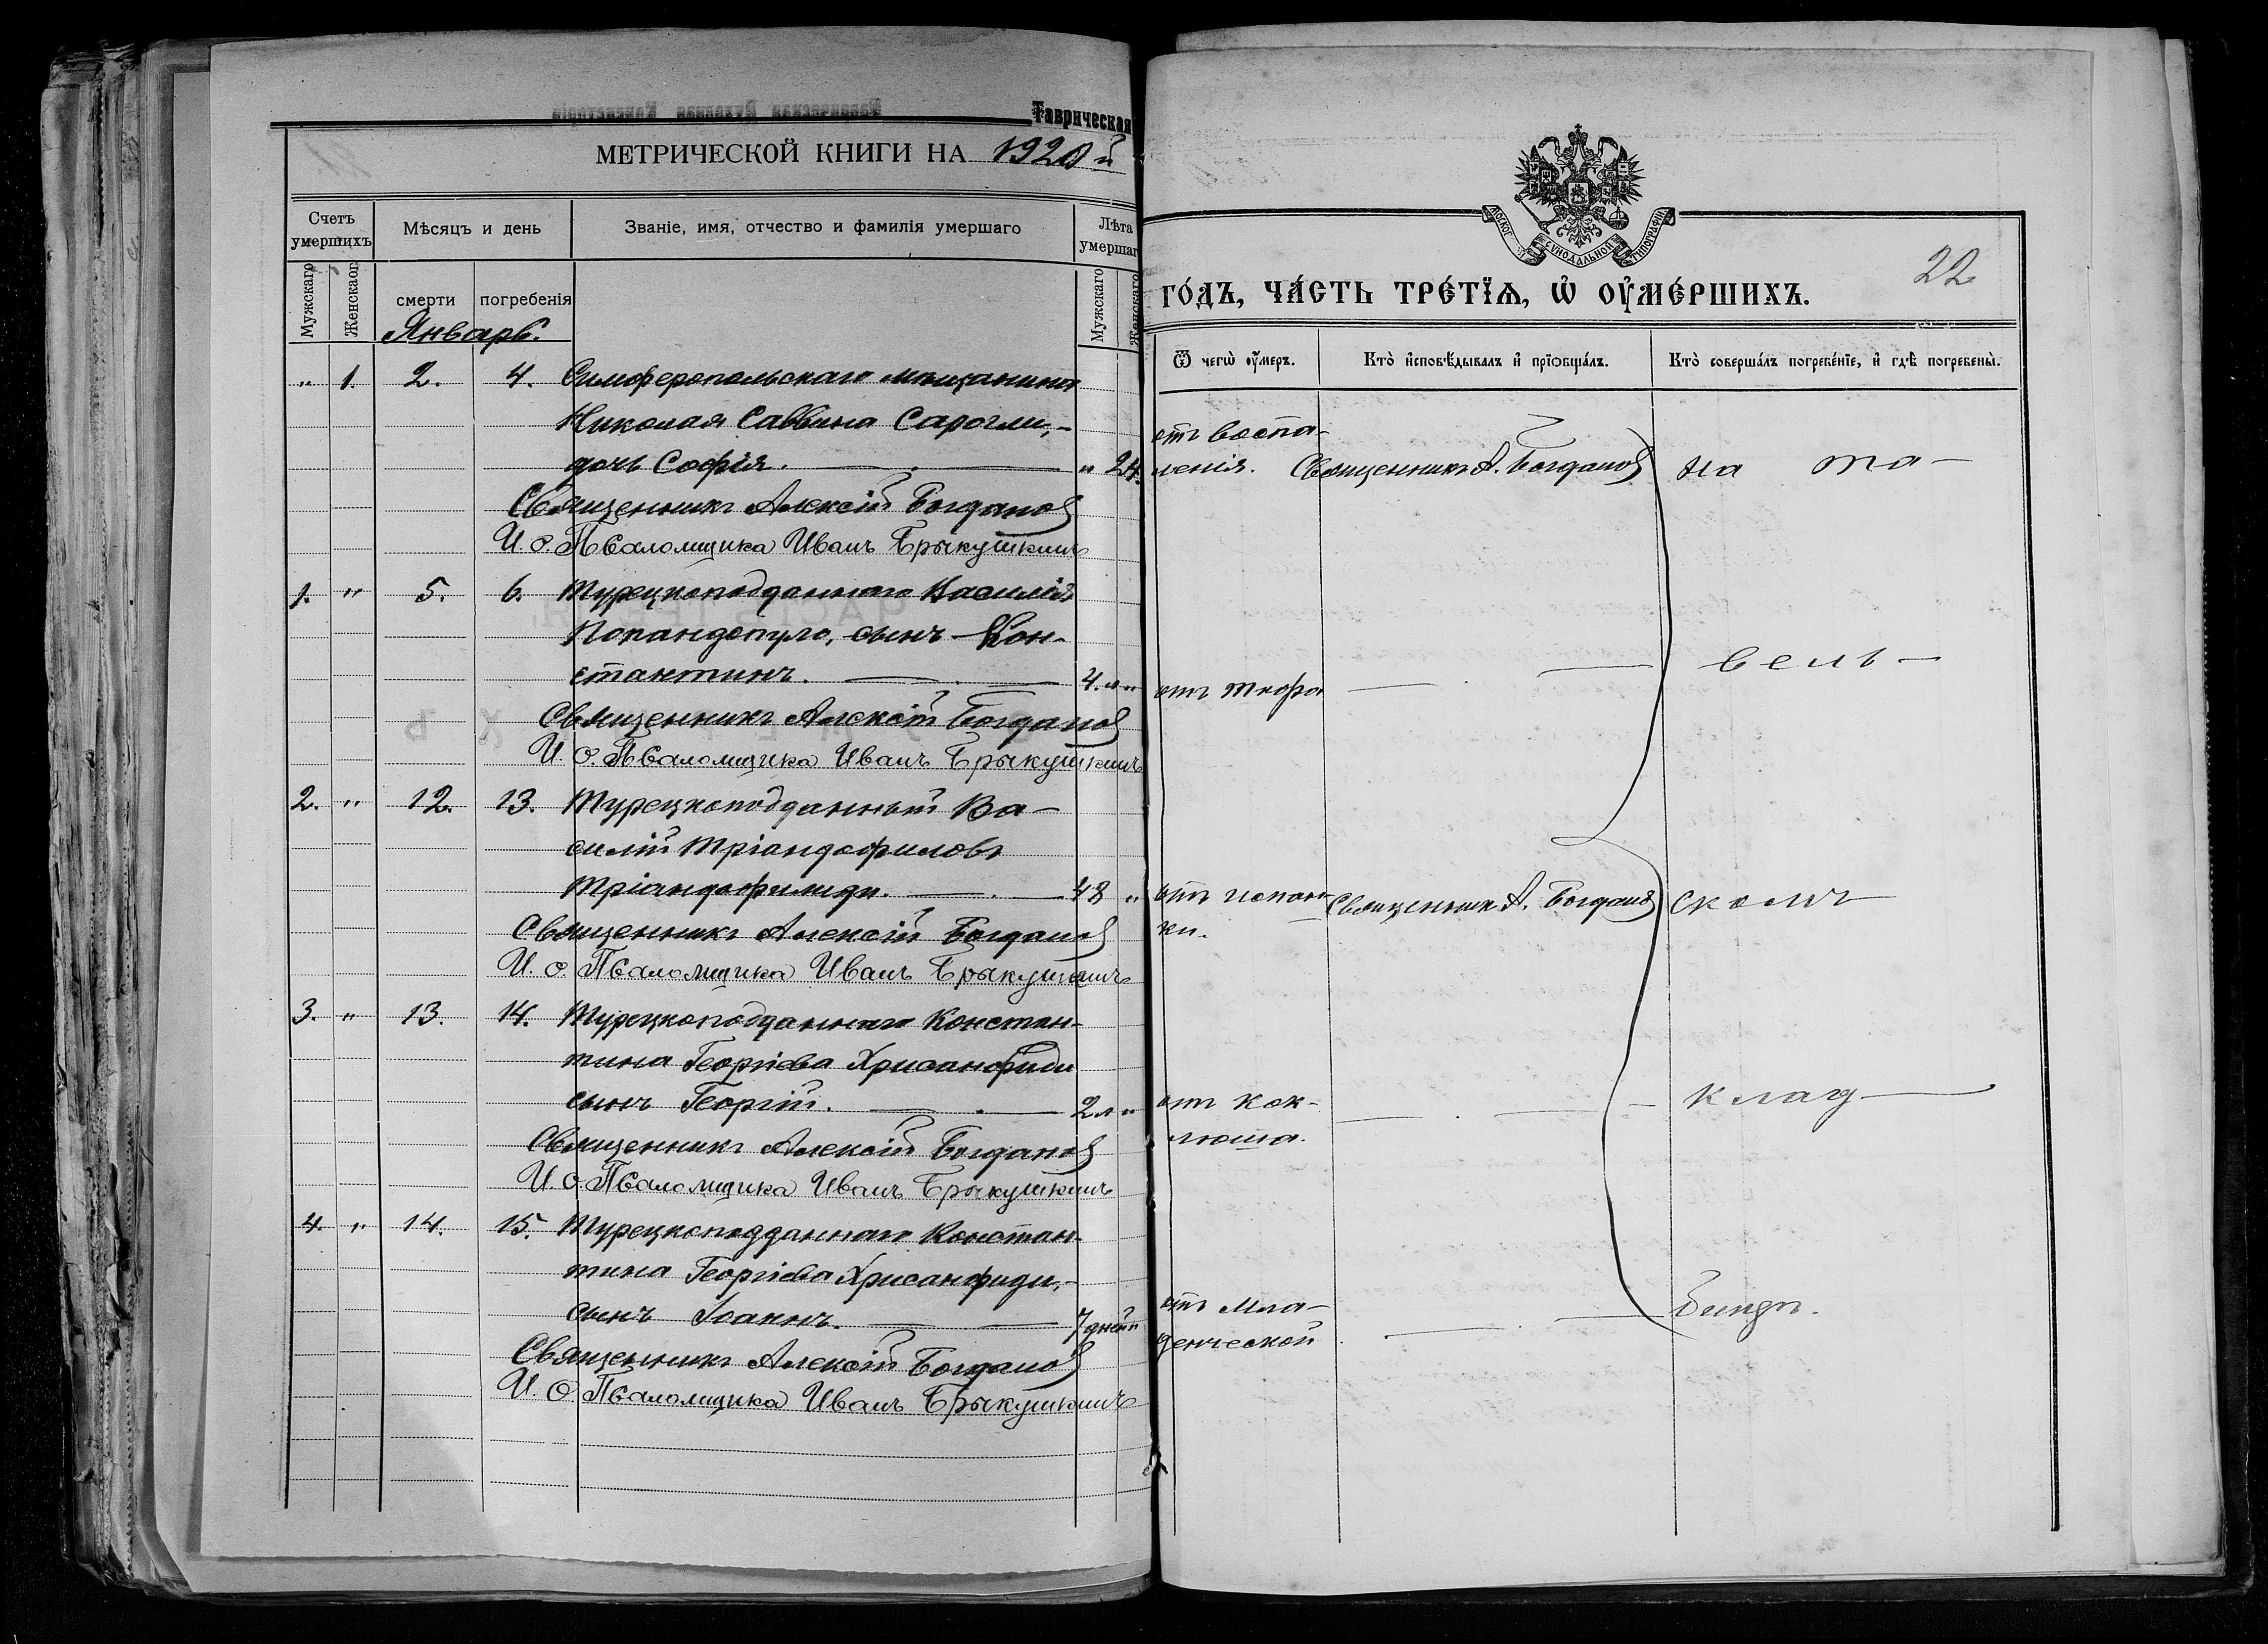 Таврическая
МЕТРИЧЕСКОЙ КНИГИ НА 1920 й
Счетъ умершихъ
Мѣсяцъ и день
Званіе, имя, отчество и фамилія умершаго
Лѣта умершаг
Мужскаго
Женскаго
смерти
погребенія
Мужскаго
Женскаго
Январь.
" 1. 2. 4. Симферопольскаго мѣщанина
Николая Саввина Сарогли,-
дочь Софія. " 24.
Священникъ Алексій Богданов
И. о. Псаломщика Иванъ Брыкушкинъ
1. " 5. 6. Турецкоподданнаго Василія
Попандопуло, сынъ Кон-
стантинъ. 4. л "
Священникъ Алексій Богданов
И. о. Псаломщика Иванъ Брыкушкинъ
2. " 12. 13. Турецкоподданный Ва-
силій Тріандофиловъ
Тріандофилиди. 48 "
Священникъ Алексій Богданов
И. о. Псаломщика Иванъ Брыкушкинъ
3. " 13. 14. Турецкоподданнаго Констан-
тина Георгіева Хрисанфиди
сынъ Георгій. 2 л "
Священникъ Алексій Богданов
И. о. Псаломщика Иванъ Брыкушкинъ
4. " 14. 15. Турецкоподданнаго Констан-
тина Георгіева Хрисанфиди,-
сынъ Іоаннъ. 7 дней "
Священникъ Алексій Богданов
И. о. Псаломщика Иванъ Брыкушкинъ
МОСКОВ СѴНОДАЛЬНОЙ ТИПОГРАФІИ
22
го́дъ, ча́сть тре́тїѧ, ѡ҆ ᲂу҆ме́ршихъ.
Ѿ чегѡ̀ ᲂу҆́меръ.
Кто̀ и҆сповѣ́дывалъ и҆ прїѡбща́лъ.
Кто̀ соверша́лъ погребе́нїе, и҆ гдѣ̀ погребены̀.
отъ воспа-
ленія. Священникъ А. Богданов на та-
отъ тифа вель-
отъ испан- Священник А. Богданов скомъ
ки.
отъ кок- клад-
люша.
отъ мла- бищѣ.
денческой